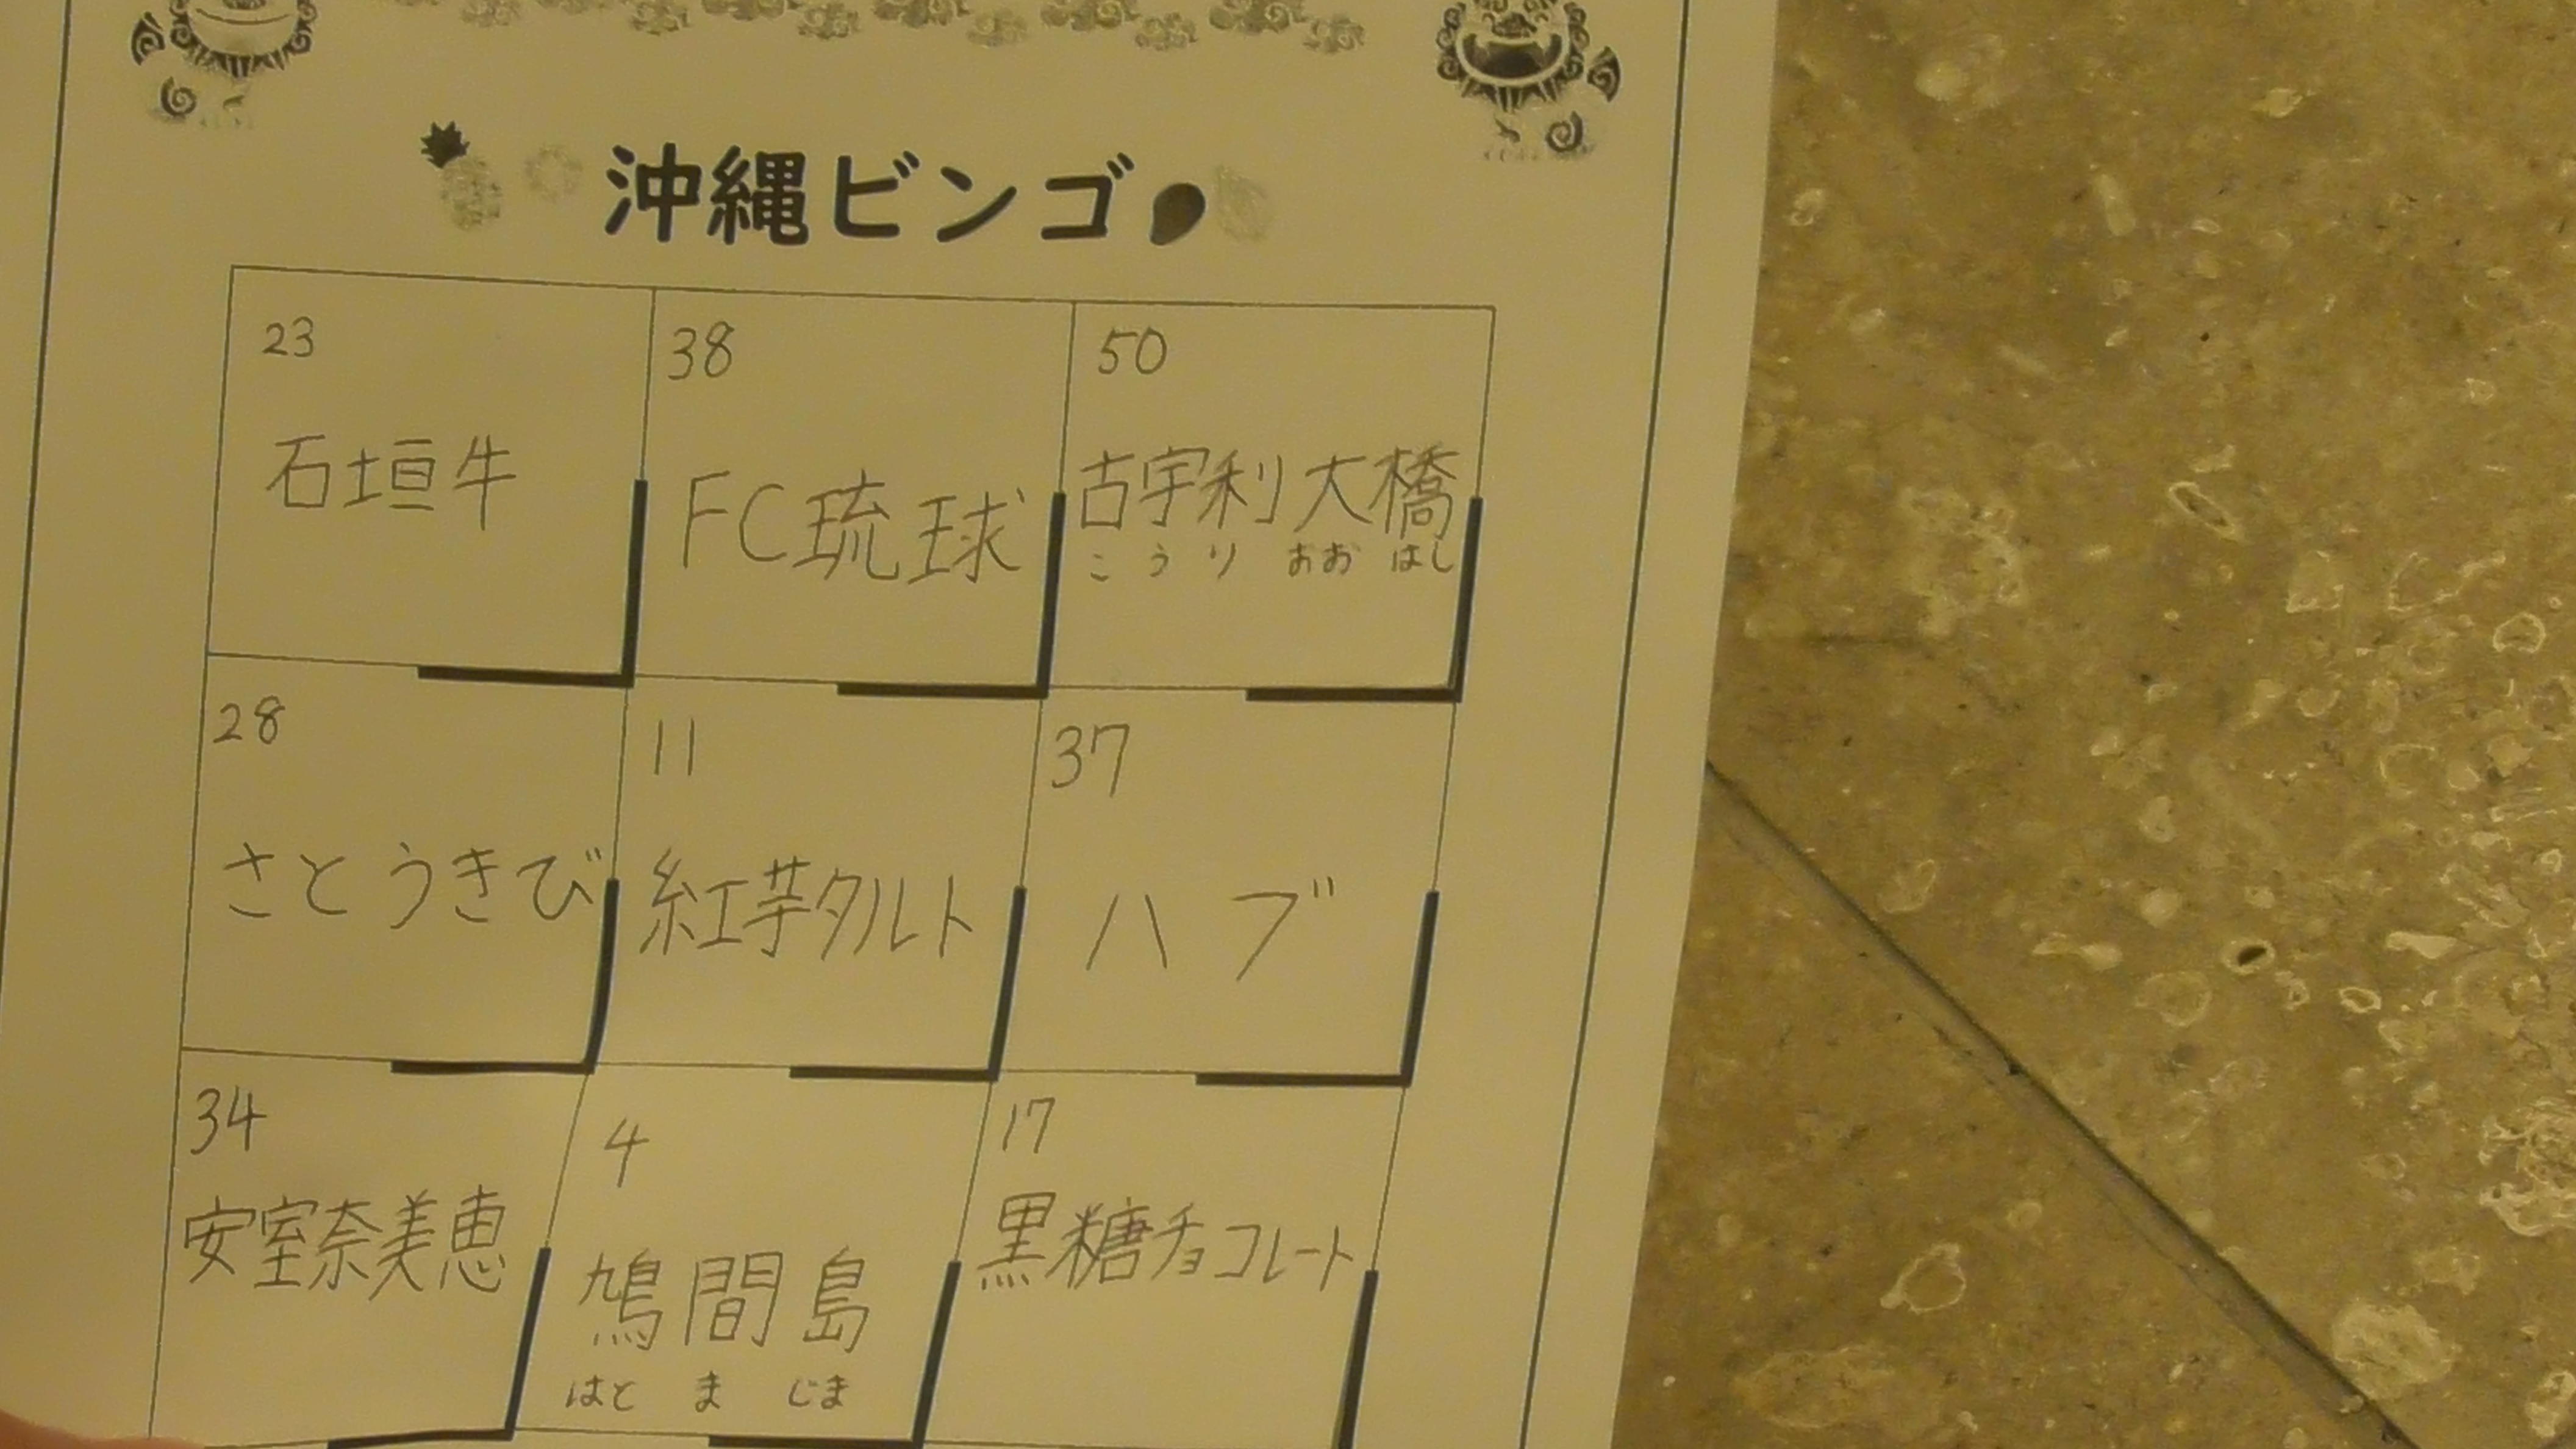 沖縄ビンゴ
23
石垣牛
38
FC琉球
50
古宇利大橋
こうり おおはし
28
さとうきび
11
紅芋タルト
37
ハブ
34
安室奈美恵
4
鳩間島
はと ま じま
17
黒糖チョコレート